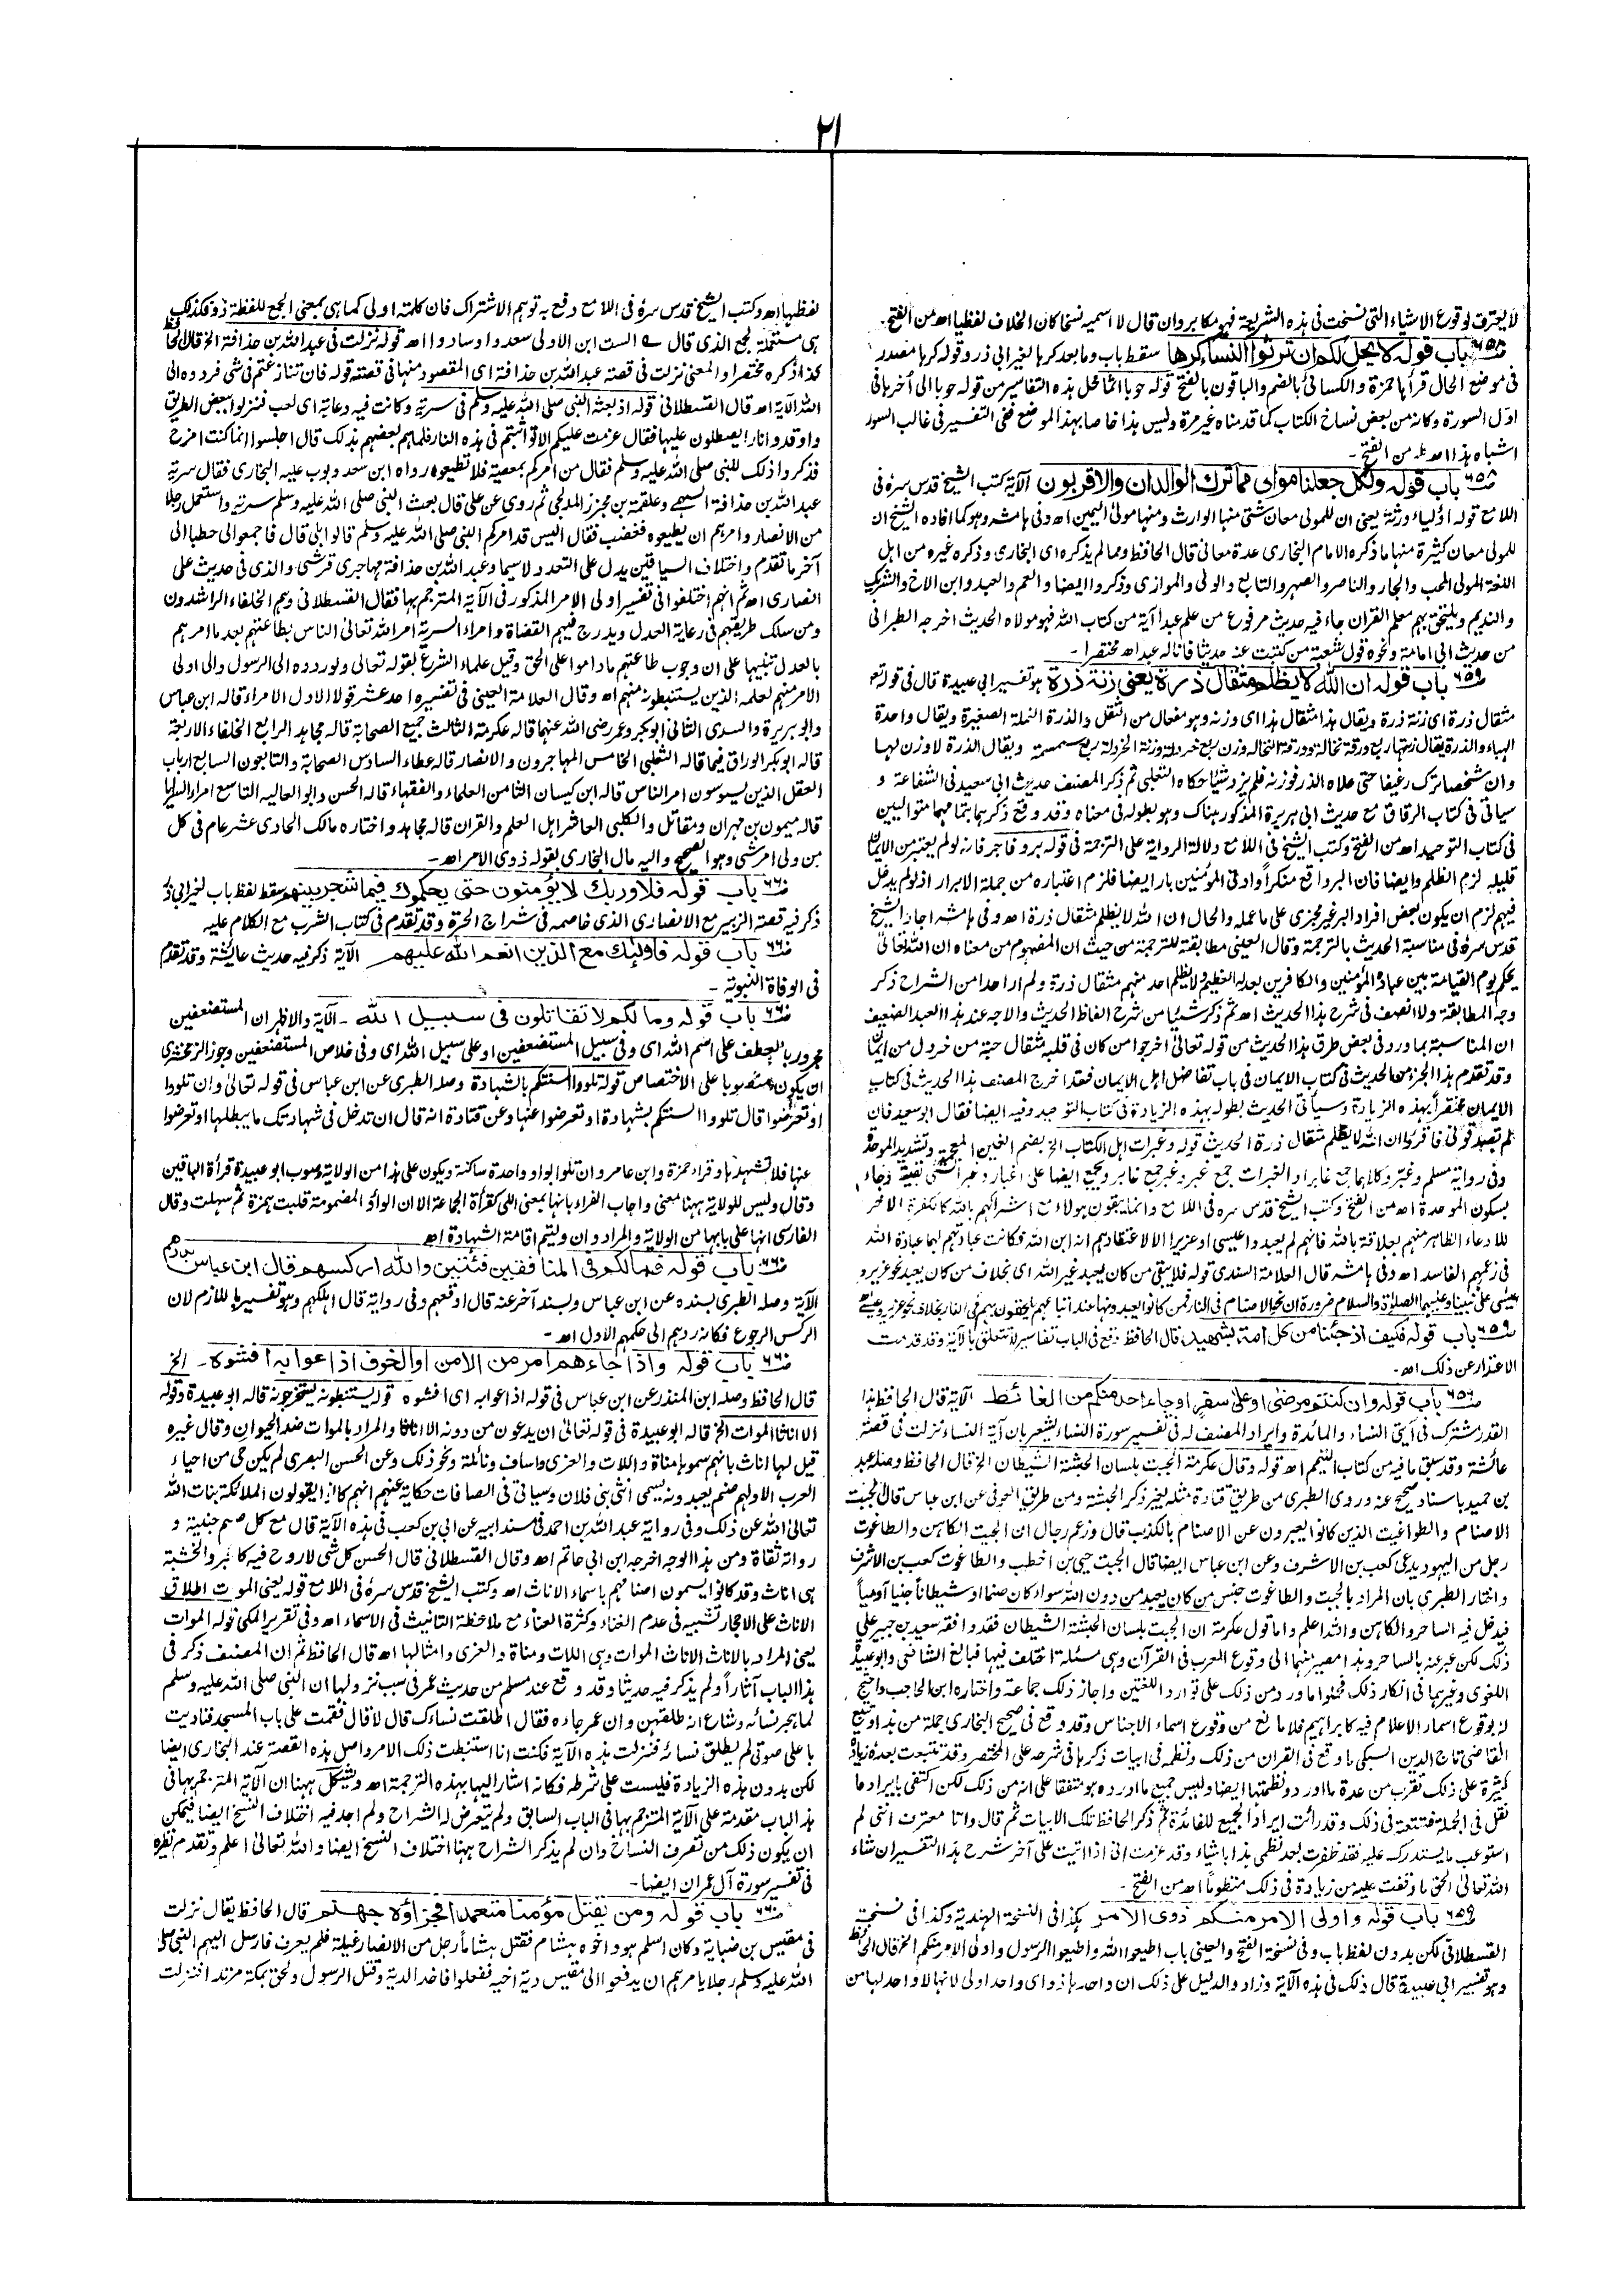 ٢١
لا يعترف لوقوع الاشياء التي نسخت في هذه الشريعة فهو مكابر وان قال لا اسميه نسخا كان الخلاف لفظيا اه من الفتح
ص٦٥٨ باب قوله لا يحل لكم ان ترثوا النساء كرها سقط باب وما بعد كرها لغير ابي ذر وقوله كرها مصدر
في موضع الحال قرأها حمزة والكسائي بالضم والباقون بالفتح قوله حوبا اثما محل هذه التفاسير من قوله حوبا الى آخرها في
اول السورة وكانه من بعض نساخ الكتاب كما قدمناه غير مرة وليس هذا خاصا بهذا الموضع ففي التفسير في غالب السور
اشباه هذا اه من الفتح ـ
ص٦٥٨ باب قوله ولكل جعلنا موالى مما ترك الوالدان والاقربون الآية كتب الشيخ قدس سره في
اللامع قوله اولياء ورثة يعني ان للمولى معان شتى منها الوارث ومنها مولى اليمين اه وفي هامشه وهو كما افاده الشيخ ان
للمولى معان كثيرة منها ما ذكره الامام البخاري عدة معاني قال الحافظ ومما لم يذكره اى البخاري وذكره غيره من اهل
اللغة المولى المحب والجار والناصر والصهر والتابع والولى والموازي وذكروا ايضا والعم والعبد وابن الاخ والشريك
والنديم ويلتحق بهم معلم القران جاء فيه حديث مرفوع من علم عبدا آية من كتاب الله فهو مولاه الحديث اخرجه الطبراني
من حديث ابي امامة ونحوه قول شعبة من كتبت عنه حديثا فانا له عبد اه مختصرا ـ
ص٦٥٩ باب قوله ان الله لا يظلم مثقال ذرة يعني زنة ذرة هو تفسير ابي عبيدة قال في قوله تعـ
مثقال ذرة اى زنة ذرة ويقال هذا مثقال هذا اى وزنه وهو مفعال من الثقل والذرة النملة الصغيرة ويقال واحدة
الهباء والذرة يقال زنتها ربع ورقة نخالة وورقة النخالة وزن ربع خردلة وزنة الخردلة ربع سمسمة ويقال الذرة لا وزن لها
وان شخصا ترك رغيفا حتى علاه الذر فوزنه فلم يزد شيئا حكاه الثعلبي ثم ذكر المصنف حديث ابي سعيد في الشفاعة و
سياتي في كتاب الرقاق مع حديث ابي هريرة المذكور هناك وهو بطوله في معناه وقد وقع ذكرهما بتمامهما متواليين
في كتاب التوحيد اه من الفتح وكتب الشيخ في اللامع دلالة الرواية على الترجمة في قوله بر وفاجر فانه لو لم يعتبر من الايمان
قليله لزم الظلم وايضا فان البر واقع منكرا وادنى المؤمنين بار ايضا فلزم اعتباره من جملة الابرار اذ لو لم يدخل
فيهم لزم ان يكون بعض افراد البر غير مجزى على ما عمله والحال ان الله لا يظلم مثقال ذرة اه وفي هامشه اجاد الشيخ
قدس سره في مناسبة الحديث بالترجمة وقال العيني مطابقة للترجمة من حيث ان المفهوم من معناه ان الله تعالى
يحكم يوم القيامة بين عباده المؤمنين والكافرين بعدله العظيم لا يظلم احد منهم مثقال ذرة ولم ار احدا من الشراح ذكر
وجه المطابقة ولا انصف في شرح هذا الحديث اه ثم ذكر شيئا من شرح الفاظ الحديث والاوجه عند هذا العبد الضعيف
ان المناسبة بما ورد في بعض طرق هذا الحديث من قوله تعالى اخرجوا من كان في قلبه مثقال حبة من خردل من ايمان
وقد تقدم هذا الجزء من الحديث في كتاب الايمان في باب تفاضل اهل الايمان فقد اخرج المصنف هذا الحديث في كتاب
الايمان مختصرا بهذه الزيادة وسيأتي الحديث بطوله بهذه الزيادة في كتاب التوحيد وفيه ايضا فقال ابو سعيد فان
لم تصدقوني فاقرؤا ان الله لا يظلم مثقال ذرة الحديث قوله وغبرات اهل الكتاب الخ بضم الغين المعجمة وتشديد الموحدة
وفي رواية مسلم وغبر وكلاهما جمع غابر او الغبرات جمع غبر وغبر جمع غابر ويجمع ايضا على اغبار وغبر الشئ بقيته وجاء
بسكون الموحدة اه من الفتح وكتب الشيخ قدس سره في اللامع وانما يبقون هؤلاء مع اشراكهم بالله كالكفرة الاخر
للادعاء الظاهر منهم بعلاقة بالله فانهم لم يعبدوا عيسى او عزيرا الا لاعتقادهم انه ابن الله فكانت عبادتهم لهما عبادة الله
في زعمهم الفاسد اه وفي هامشه قال العلامة السندي قوله فلا يبقى من كان يعبد غير الله اى بخلاف من كان يعبد نحو عزير و
عيسى على نبينا وعليهما الصلوة والسلام ضرورة ان نحو الاصنام في النار فمن كانوا العبدونها عند اتباعهم يلحقون بهم في النار بخلاف نحو عزير وعيسى اه
ص٦٥٩ باب قوله فكيف اذا جئنا من كل امة بشهيد قال الحافظ وقع في الباب تفاسير لا تتعلق بالآية وقد قدمت
الاعتذار عن ذلك اه ـ
ص٦٥٩ باب قوله وان كنتم مرضى او على سفر او جاء احد منكم من الغائط الآية قال الحافظ هذا
القدر مشترك في آيتي النساء والمائدة وايراد المصنف له في تفسير سورة النساء يشعر بان آية النساء نزلت في قصة
عائشة وقد سبق ما فيه من كتاب التيمم اه قوله وقال عكرمة الجبت بلسان الحبشة الشيطان الخ قال الحافظ وصله عبد
بن حميد باسناد صحيح عنه وروى الطبري من طريق قتادة مثله بغير ذكر الحبشة ومن طريق العوفي عن ابن عباس قال الجبت
الاصنام والطواغيت الذين كانوا يعبرون عن الاصنام بالكذب قال وزعم رجال ان الجبت الكاهن والطاغوت
رجل من اليهود يدعى كعب بن الاشرف وعن ابن عباس ايضا قال الجبت حيي بن اخطب والطاغوت كعب بن الاشرف
واختار الطبري بان المراد بالجبت والطاغوت جنس من كان يعبد من دون الله سواء كان صنما او شيطانا جنيا آدميا
فيدخل فيه الساحر والكاهن والله اعلم واما قول عكرمة ان الجبت بلسان الحبشة الشيطان فقد وافقه سعيد بن جبير على
ذلك لكن عبر عنه بالساحر وهذا مصير منهما الى وقوع المعرب في القرآن وهي مسئلة اختلف فيها فبالغ الشافعي وابو عبيدة
اللغوي وغيرهما في انكار ذلك فحملوا ما ورد من ذلك على توارد اللغتين واجاز ذلك جماعة واختاره ابن الحاجب واحتج
له بوقوع اسماء الاعلام فيه كابراهيم فلا مانع من وقوع اسماء الاجناس وقد وقع في صحيح البخاري جملة من هذا وتتبع
القاضي تاج الدين السبكي ما وقع في القران من ذلك ونظمه في ابيات ذكرها في شرحه على المختصر وقد تتبعت بعده زيادة
كثيرة على ذلك تقرب من عدة ما اورد ونظمتها ايضا وليس جميع ما اورده هو متفقا على انه من ذلك لكن اكتفى بايراد ما
نقل في الجملة فتبعته في ذلك وقد رأيت ايراد الجميع للفائدة ثم ذكر الحافظ تلك الابيات ثم قال وانا معترف انني لم
استوعب ما يستدرك عليه فقد ظفرت بعد نظمي هذا باشياء وقد عزمت اني اذا اتيت على آخر شرح هذا التفسير ان شاء
الله تعالى الحق ما وقفت عليه من زيادة في ذلك منظوما اه من الفتح ـ
ص٦٥٩ باب قوله واولى الامر منكم ذوى الامر هكذا في النسخة الهندية وكذا في نسخة
القسطلاني لكن بدون لفظ باب وفي نسخة الفتح والعيني باب اطيعوا الله واطيعوا الرسول واولى الامر منكم الخ قال الحافظ
وهو تفسير ابي عبيدة قال ذلك في هذه الآية وزاد والدليل على ذلك ان واحدها ذو اى واحد اولى لانها لا واحد لها من
لفظها اه وكتب الشيخ قدس سره في اللامع دفع به توهم الاشتراك فان كلمة اولى كما هي بمعنى الجمع للفظة ذو فكذلك
هي مستعملة لجمع الذى قال ؎ الست ابن الاولى سعدوا وسادوا اه قوله نزلت في عبد الله بن حذافة الخ قال الحافظ
كذا ذكره مختصرا والمعنى نزلت في قصة عبد الله بن حذافة اى المقصود منها في قصته قوله فان تنازعتم في شئ فردوه الى
الله الآية اه قال القسطلاني قوله اذ بعثه النبي صلى الله عليه وسلم في سرية وكانت فيه دعابة اى لعب فنزلوا ببعض الطريق
واوقدوا نارا يصطلون عليها فقال عزمت عليكم الا تواثبتم في هذه النار فلما هم بعضهم بذلك قال اجلسوا انما كنت امزح
فذكروا ذلك للنبي صلى الله عليه وسلم فقال من امركم بمعصية فلا تطيعوه رواه ابن سعد وبوب عليه البخاري فقال سرية
عبد الله بن حذافة السهمي وعلقمة بن مجزز المدلجي ثم روى عن علي قال بعث النبي صلى الله عليه وسلم سرية واستعمل رجلا
من الانصار وامرهم ان يطيعوه فغضب فقال اليس قد امركم النبي صلى الله عليه وسلم قالوا بلى قال فاجمعوا لى حطبا الى
آخر ما تقدم واختلاف السياقين يدل على التعدد لا سيما وعبد الله بن حذافة مهاجري قرشي والذي في حديث علي
انصاري اه ثم انهم اختلفوا في تفسير اولى الامر المذكور في الآية المترجم بها فقال القسطلاني وهم الخلفاء الراشدون
ومن سلك طريقهم في رعاية العدل ويدرج فيهم القضاة وامراء السرية امر الله تعالى الناس بطاعتهم بعد ما امرهم
بالعدل تنبيها على ان وجوب طاعتهم ما داموا على الحق وقيل علماء الشرع لقوله تعالى ولو ردوه الى الرسول والى اولى
الامر منهم لعلمه الذين يستنبطونه منهم اه وقال العلامة العيني في تفسيره احد عشر قولا الاول الامراء قاله ابن عباس
وابو هريرة والسدي الثاني ابو بكر وعمر رضي الله عنهما قاله عكرمة الثالث جميع الصحابة قاله مجاهد الرابع الخلفاء الاربعة
قاله ابو بكر الوراق فيما قاله الثعلبي الخامس المهاجرون والانصار قاله عطاء السادس الصحابة والتابعون السابع ارباب
العقل الذين يسوسون امر الناس قاله ابن كيسان الثامن العلماء والفقهاء قاله الحسن وابو العاليه التاسع امراء السرايا
قاله ميمون بن مهران ومقاتل والكلبي العاشر اهل العلم والقران قاله مجاهد واختاره مالك الحادي عشر عام في كل
من ولى امر شئ وهو الصحيح واليه مال البخاري بقوله ذوى الامر اه ـ
ص٦٦٠ باب قوله فلا وربك لا يؤمنون حتى يحكموك فيما شجر بينهم سقط لفظ باب لغير ابي ذر
ذكر فيه قصة الزبير مع الانصاري الذي خاصمه في شراج الحرة وقد تقدم في كتاب الشرب مع الكلام عليه
ص٦٦٠ باب قوله فاولئك مع الذين انعم الله عليهم الآية ذكر فيه حديث عائشة وقد تقدم
في الوفاة النبوية ـ
ص٦٦٠ باب قوله وما لكم لا تقاتلون في سبيل الله ـ الآية والاظهر ان المستضعفين
مجرور بالعطف على اسم الله اى وفي سبيل المستضعفين او على سبيل الله اى وفي خلاص المستضعفين وجوز الزمخشري
ان يكون منصوبا على الاختصاص قوله تلووا السنتكم بالشهادة وصله الطبري عن ابن عباس في قوله تعالى وان تلووا
او تعرضوا قال تلووا السنتكم بشهادة او تعرضوا عنها وعن قتادة انه قال ان تدخل في شهادتك ما يبطلها او تعرضوا
عنها فلا تشهد بها وقراء حمزة وابن عامر وان تلوا بواو واحدة ساكنة ويكون على هذا من الولاية وصوب ابو عبيدة قرأة الباقين
وقال وليس للولاية ههنا معنى واجاب الفراء بانها بمعنى اللى كقرأة الجماعة الا ان الواو المضمومة قلبت همزة ثم سهلت وقال
الفارسي انها على بابها من الولاية والمراد وان وليتم اقامة الشهادة اه
ص٦٦٠ باب قوله فما لكم في المنافقين فئتين والله اركسهم قال ابن عباس بددهم
الآية وصله الطبري بسنده عن ابن عباس وبسند آخر عنه قال اوقعهم وفي رواية قال اهلكهم وهو تفسير باللازم لان
الركس الرجوع فكانه ردهم الى حكمهم الاول اه ـ
ص٦٦٠ باب قوله واذا جاءهم امر من الامن او الخوف اذاعوا به افشوه ـ الخ
قال الحافظ وصله ابن المنذر عن ابن عباس في قوله اذاعوا به اى افشوه قوله يستنبطونه يستخرجونه قاله ابو عبيدة وقوله
الا اناثا الموات الخ قاله ابو عبيدة في قوله تعالى ان يدعون من دونه الا اناثا والمراد بالموات ضد الحيوان وقال غيره
قيل لها اناث بانهم سموها مناة واللات والعزى واساف ونائلة ونحو ذلك وعن الحسن البصري لم يكن حى من احياء
العرب الا ولهم صنم يعبدونه يسمى انثى بني فلان وسياتي في الصافات حكاية عنهم انهم كانوا يقولون الملائكة بنات الله
تعالى الله عن ذلك وفي رواية عبد الله بن احمد في مسند ابيه عن ابي بن كعب في هذه الآية قال مع كل صنم جنية و
رواته ثقاة ومن هذا الوجه اخرجه ابن ابي حاتم اه وقال القسطلاني قال الحسن كل شئ لا روح فيه كالحجر والخشبة
هي اناث وقد كانوا يسمون اصنامهم باسماء الاناث اه وكتب الشيخ قدس سره في اللامع قوله يعني الموات اطلاق
الاناث على الاحجار تشبيه في عدم الغناء وكثرة العناء مع ملاحظة التانيث في الاسماء اه وفي تقرير المكي قوله الموات
يعني المراد بالاناث الاناث الموات وهي اللات ومناة والعزى وامثالها اه قال الحافظ ثم ان المصنف ذكر في
هذا الباب آثارا ولم يذكر فيه حديثا وقد وقع عند مسلم من حديث عمر في سبب نزولها ان النبي صلى الله عليه وسلم
لما هجر نسائه وشاع انه طلقهن وان عمر جاءه فقال اطلقت نساءك قال لا قال فقمت على باب المسجد فناديت
باعلى صوتي لم يطلق نسائه فنزلت هذه الآية فكنت انا استنبطت ذلك الامر واصل هذه القصة عند البخاري ايضا
لكن بدون هذه الزيادة فليست على شرطه فكانه اشار اليها بهذه الترجمة اه ويشكل ههنا ان الآية المترجم بها في
هذا الباب مقدمة على الآية المترجم بها في الباب السابق ولم يتعرض له الشراح ولم اجد فيه اختلاف النسخ ايضا فيمكن
ان يكون ذلك من تصرف النساخ وان لم يذكر الشراح ههنا اختلاف النسخ ايضا والله تعالى اعلم وتقدم نظيره
في تفسير سورة آل عمران ايضا ـ
ص٦٦٠ باب قوله ومن يقتل مؤمنا متعمدا فجزاؤه جهنم قال الحافظ يقال نزلت
في مقيس بن ضبابة وكان اسلم هو واخوه هشام فقتل هشاما رجل من الانصار غيلة فلم يعرف فارسل اليهم النبي صلى
الله عليه وسلم رجلا يامرهم ان يدفعوا الى مقيس دية اخيه ففعلوا فاخذ الدية وقتل الرسول ولحق بمكة مرتدا فنزلت